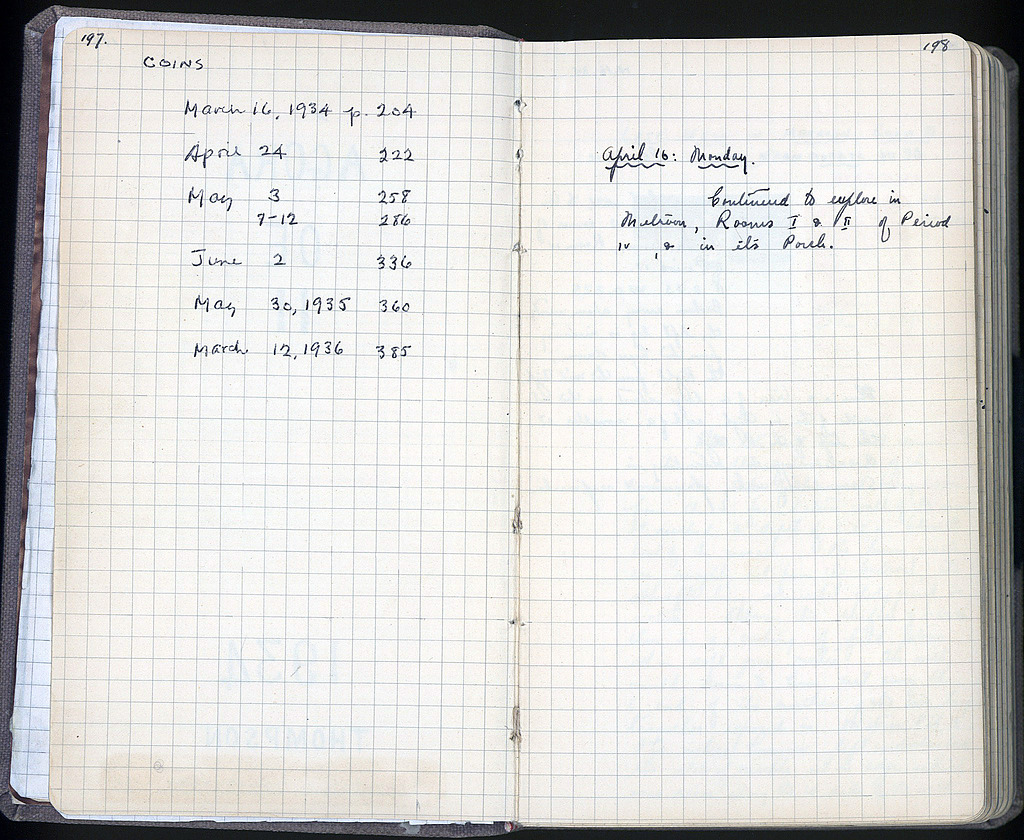 197.
COINS
March 16, 1934 p. 204
April 24 222
May 3 258
7-12 286
June 2 336
May 30, 1935 360
March 12, 1936 385
198
April 16: Monday.
Continued to explore in
Metroon, Rooms I & II of Period
IV, & in its Porch.
1934
THOMPSON